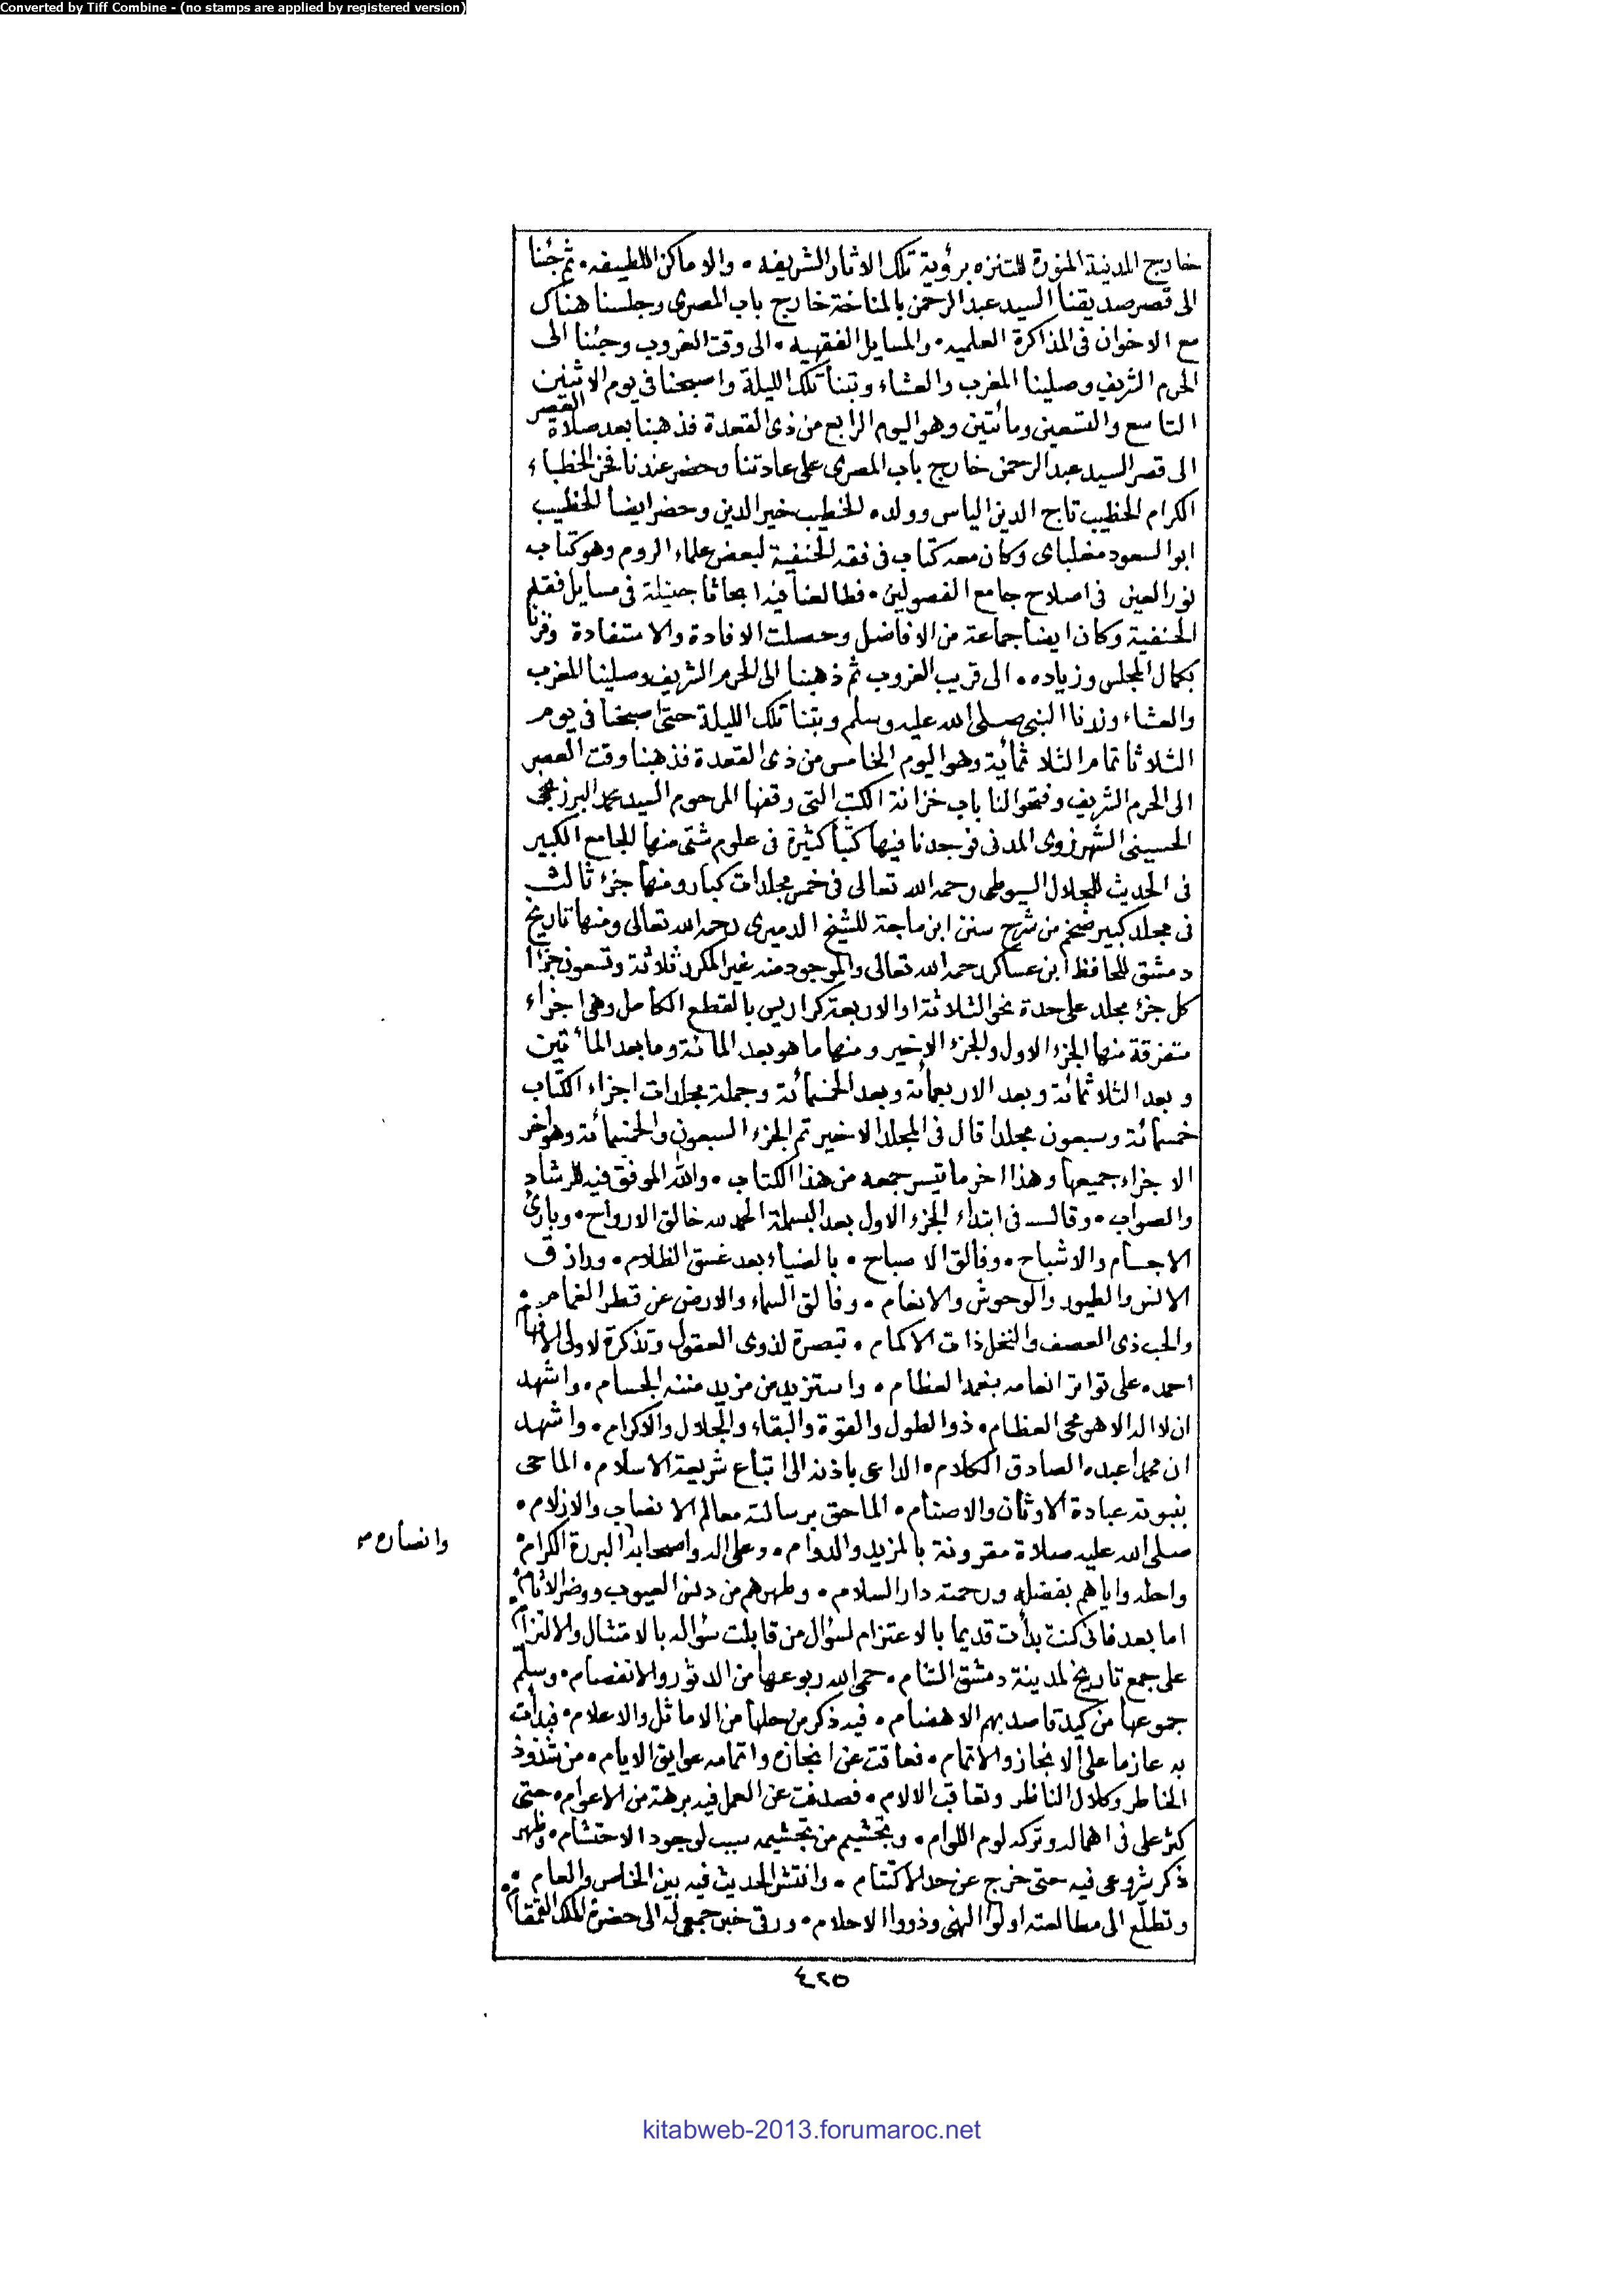 Converted by Tiff Combine - (no stamps are applied by registered version)
خارج المدينة المنورة للتنزه برؤية تلك الاثار الشريفه • والاماكن اللطيفه • ثم جئنا
الى قصر صديقنا السيد عبد الرحمن بالمناخة خارج باب المصرى وجلسنا هناك
مع الاخوان فى المذاكرة العلميه • والمسايل الفقهيه • الى وقت الغروب وجئنا الى
الحرم الشريف وصلينا المغرب والعشاء وبتنا تلك الليلة واصبحنا فى يوم الاثنين
التاسع والتسعين ومائتين وهو اليوم الرابع من ذى القعدة فذهبنا بعد صلاة العصر
الى قصر السيد عبد الرحمن خارج باب المصرى على عادتنا وحضر عندنا فخر الخطباء
الكرام الخطيب تاج الدين الياس وولده الخطيب خير الدين وحضر ايضا الخطيب
ابو السعود مغلباى وكان معه كتاب فى فقه الحنفية لبعض علماء الروم وهو كتاب
نور العين فى اصلاح جامع الفصولين • فطالعنا فيه ابحاثا جليلة فى مسايل فقه
الحنفية وكان ايضا جماعة من الافاضل وحصلت الافادة والاستفادة وفزنا
بكمال المجلس وزياده • الى قريب الغروب ثم ذهبنا الى الحرم الشريف وصلينا المغرب
والعشاء وزرنا النبى صلى الله عليه وسلم وبتنا تلك الليلة حتى اصبحنا فى يوم
الثلاثا تمام الثلاثمائة وهو اليوم الخامس من ذى القعدة فذهبنا وقت العصر
الى الحرم الشريف وفتحوا لنا باب خزانة الكتب التى وقفها المرحوم السيد محمد البرزنجى
الحسينى الشهرزورى المدنى فوجدنا فيها كتبا كثيرة فى علوم شتى منها الجامع الكبير
فى الحديث للجلال السيوطى رحمه الله تعالى فى خمس مجلدات كبار ومنها جزء ثالث
فى مجلد كبير ضخم من شرح سنن ابن ماجة للشيخ الدميرى رحمه الله تعالى ومنها تاريخ
دمشق للحافظ ابن عساكر رحمه الله تعالى والموجود منه غير المكرر ثلاثة وتسعون جزءا
كل جزء مجلد على حدة نحو الثلاثة او الاربعة كراريس بالقطع الكامل وهى اجزاء
متفرقة منها الجزء الاول والجزء الاخير ومنها ما هو بعد المائة وما بعد المائتين
وبعد الثلاثمائة وبعد الاربعمائة وبعد الخمسمائة وجملة مجلدات اجزاء الكتاب
خمسمائة وسبعون مجلدا قال فى المجلد الاخير تم الجزء السبعون والخمسمائة وهو اخر
الاجزاء جميعها وهذا اخر ما تيسر جمعه من هذا الكتاب • والله الموفق فيه للرشاد
والصواب • وقال فى ابتداء الجزء الاول بعد البسملة الحمد لله خالق الارواح • وبارئ
الاجسام والاشباح • وفالق الاصباح • بالضياء بعد غسق الظلام • ورازق
الانس والطيور والوحوش والانعام • وفالق السماء والارض عن قطر الغمام •
والحب ذى العصف والنخل ذات الاكمام • تبصرة لذوى العقول وتذكرة لاولى الافهام
احمده على تواتر انعامه بنعمه العظام • واستزيده من مزيد مننه الجسام • واشهد
ان لا اله الا هو محى العظام • ذو الطول والقوة والبقاء والجلال والاكرام • واشهد
ان محمدا عبده الصادق الكلام • الداعى باذنه الى اتباع شريعة الاسلام • الماحى
بنبوته عبادة الاوثان والاصنام • الماحق برسالته معالم الانصاب والازلام •
صلى الله عليه صلاة مقرونة بالمزيد والدوام • وعلى اله واصحابه البررة الكرام
واحله واياهم بفضله ورحمته دار السلام • وطهرهم من دنس العيوب ووضر الاثام •
اما بعد فانى كنت بدأت قديما بالاعتزام لسؤال من قابلت سؤاله بالامتثال والالتزام
على جمع تاريخ لمدينة دمشق الشام • حمى الله ربوعها من الدثور والانفصام • وسلم
جموعها من كيد قاصديهم الاهضام • فيه ذكر من حلها من الاماثل والاعلام • فبدأت
به عازما على الانجاز والاتمام • فعاقت عن انجازه واتمامه عوايق الايام • من شذوذ
الخاطر وكلال الناظر وتعاقب الالام • فصدفت عن العمل فيه برهة من الاعوام • حتى
كثر على فى اهماله وتركه لوم اللوام • وتجشيم من تجشيمه سبب لوجود الاحتشام • وظهر
ذكر شروعى فيه حتى خرج عن حد الاكتتام • وانتشر الحديث فيه بين الخاص والعام •
وتطلع الى مطالعته اولوا النهى وذووا الاحلام • ورقى خبر جمعى له الى حضرة الملك القمقام
٤٢٥
kitabweb-2013.forumaroc.net